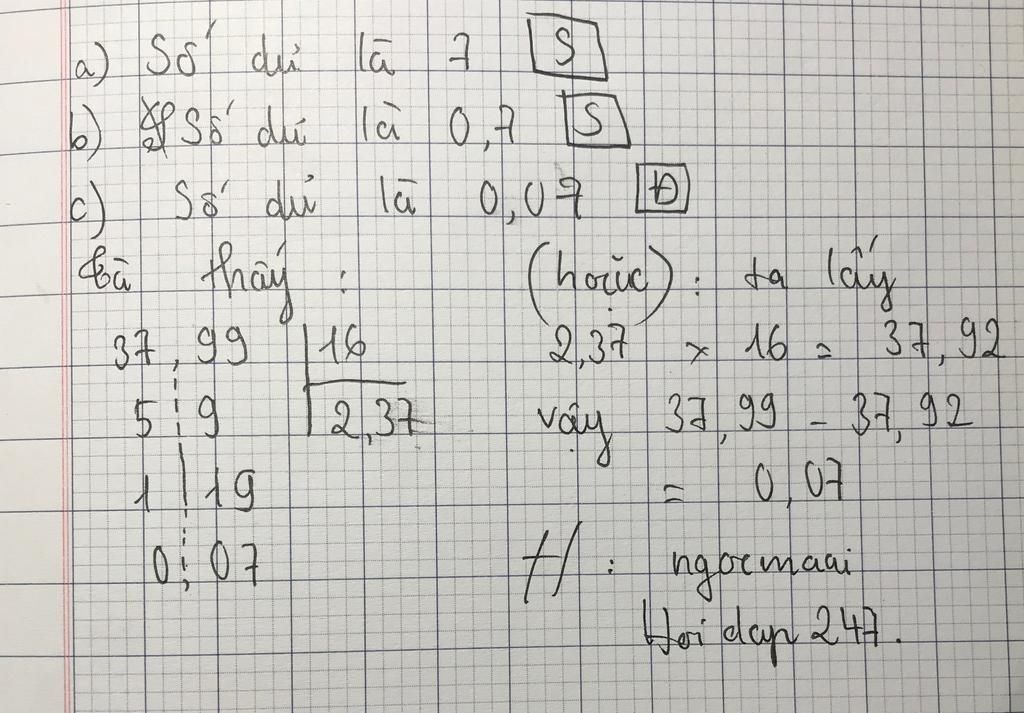 a) Số dư là 7 S
b) Số dư là 0,7 S
c) Số dư là 0,07 Đ
ta thấy : (hoặc) : ta lấy
37,99 16 2,37 x 16 = 37,92
5 9 2,37 vậy 37,99 - 37,92
1 19 = 0,07
0,07 # : ngocmaai
Hoidap247.